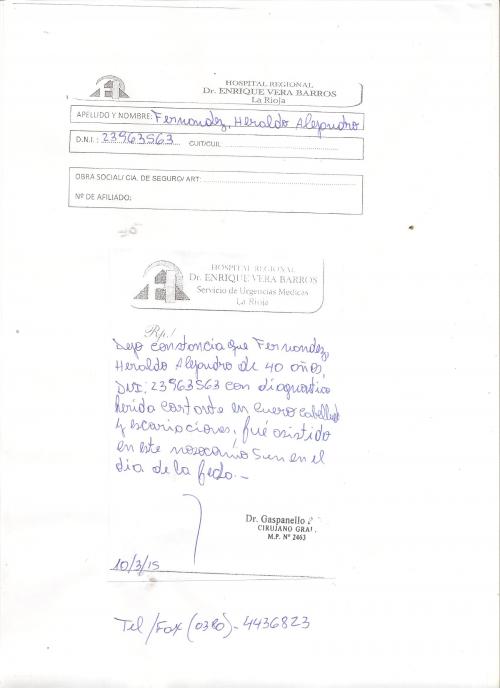 HOSPITAL REGIONAL
Dr. ENRIQUE VERA BARROS
La Rioja
APELLIDO Y NOMBRE: Fernandez, Heraldo Alejandro
D.N.I.: 23963563 CUIT/CUIL:
OBRA SOCIAL/ CIA. DE SEGURO/ ART:
Nº DE AFILIADO:
HOSPITAL REGIONAL
Dr. ENRIQUE VERA BARROS
Servicio de Urgencias Medicas
La Rioja
Rp./
Dejo constancia que Fernandez,
Heraldo Alejandro de 40 años,
DNI: 23963563 con diagnostico
herida cortante en cuero cabelludo
y escoriaciones, fué asistido
en este nosocomio en el
dia de la fecha.-
Dr. Gaspanello
CIRUJANO GRAL.
M.P. Nº 2463
10/3/15
Tel/Fax (0380)-4436823